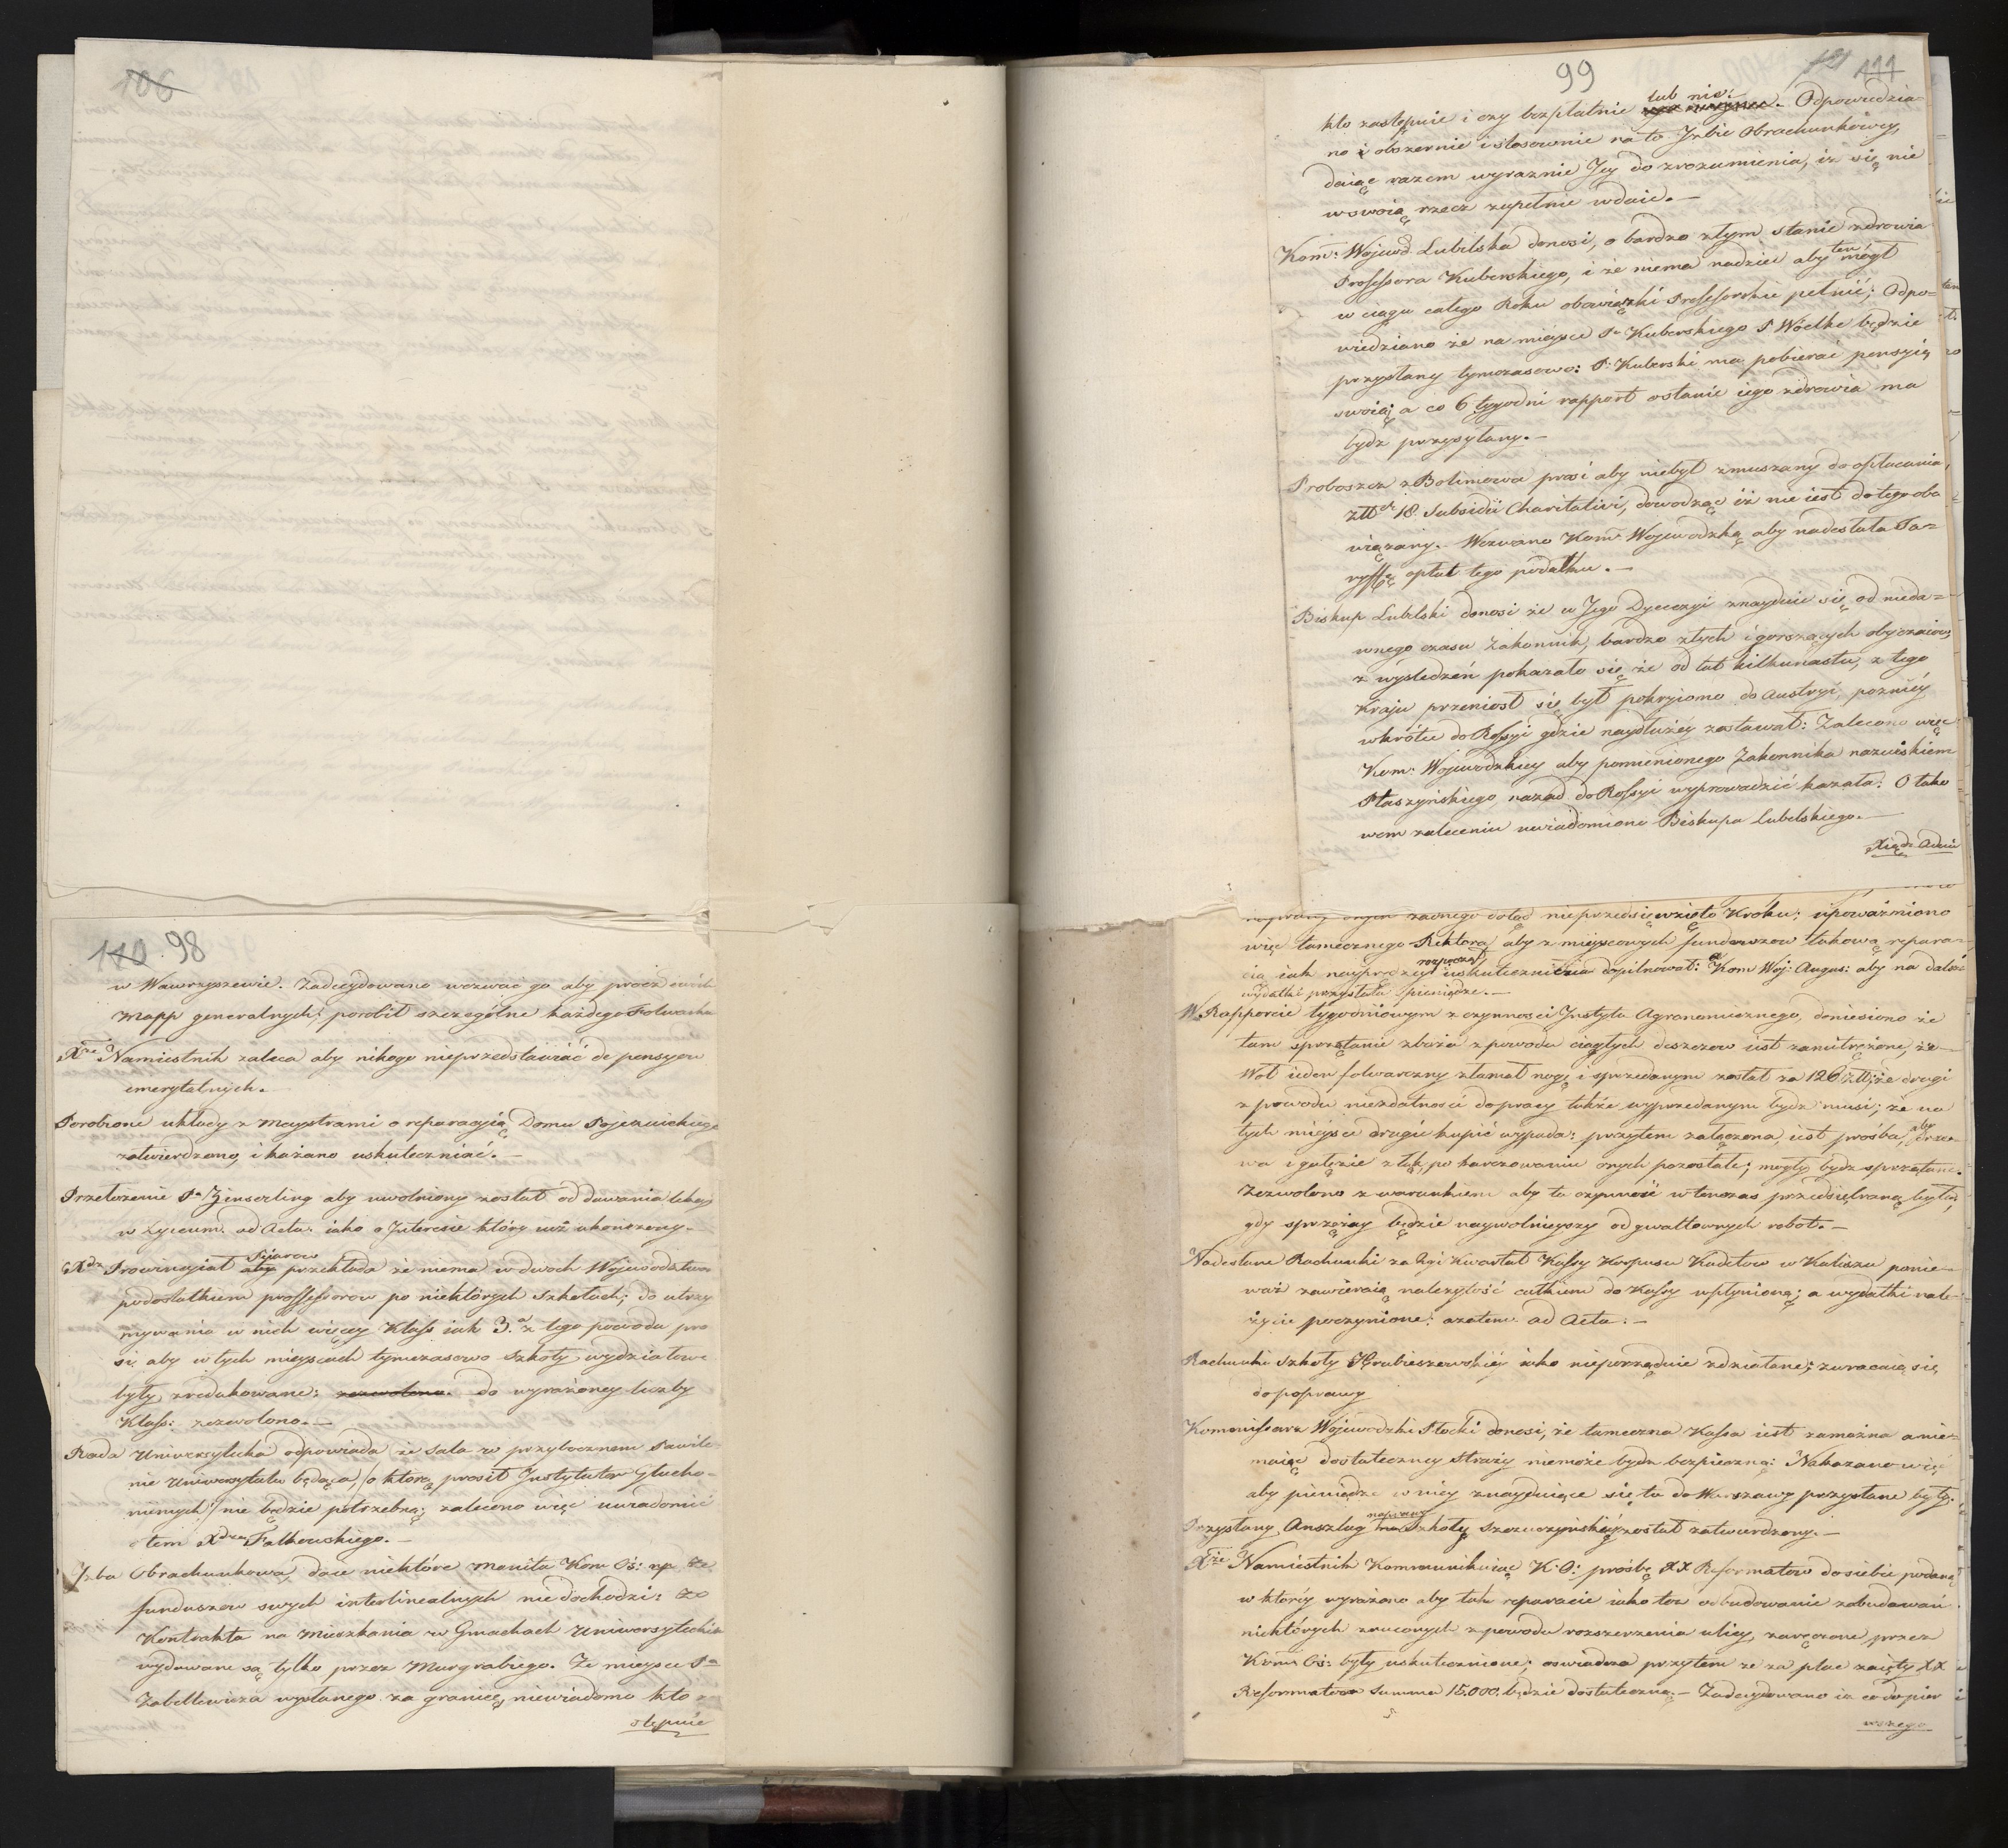 106
110 98
w Wawrzyszewie. Zadecydowano wezwać go aby prócz
Mapp generalnych; porobił szczególne każdego Folwarku
Xże Namiestnik zaleca aby nikogo nieprzedstawiać do pensyow
emerytalnych.
Porobione układy z Maystrami o reparacyią Domu Pojezuickiego
zatwierdzono, i kazano uskuteczniać. —
Przełożenie Pa Zinserling aby uwolniony został od dawania lekcyi
w Lyceum. ad Acta. iako o Interesie który iuż ukończony. —
Xdz Prowincyiał Piiarow aby przekłada że niema w dwoch Wojewodztwa
podostatkiem professorow po niektórych szkołach; do utrzy
mywania w nich więcey Klass iak 3. z tego powodu pro
si aby w tych mieyscach tymczasowo szkoły wydziałowe
były zredukowane: zezwolono. do wyrażoney liczby
Klass: zezwolono. —
Rada Uniwersytecka odpowiada że sala w przybocznem Pawilo
nie Uniwersytetu będąca, /o którą prosił Instytutor Głucho-
niemych/ nie będzie potrzebną; zalecono więc uwiadomić
o tem Xdza Falkowskiego. —
Izba Obrachunkowa, daie niektóre Monita Kom Oś: np że
funduszow swych interlinealnych niedochodzi: że
Kontrakta na Mieszkania w Gmachach Uniwersyteckich
wydawane są tylko przez Murgrabiego. Że mieysce Pa
Zabellewicza wysłanego za granicę, niewiadomo kto
stępuie
99 111
kto zastępuie i czy bezpłatnie lub nie. Odpowiedzia-
no i obszernie i stosownie na to Izbie Obrachunkowey,
daiąc razem wyraznie Jey do zrozumienia, iż się nie
w swoią rzecz zupełnie wdaie. —
Kom: Wojewd Lubelska donosi, o bardzo złym stanie zdrowia
Professora Kuberskiego, i że niema nadziei aby ten mógł
w ciągu całego Roku obowiązki Professorskie pełnić; Odpo=
wiedziano że na mieysce Pa Kuberskiego P Wóelke będzie
przysłany tymczasowo: P. Kuberski ma pobierać pensyią
swoią; a co 6 tygodni rapport ostanie iego zdrowia ma
bydz przysyłany. —
Proboszcz z Bolimowa prosi aby niebył zmuszany do opłacania,
złł 18. Subsidii Charitativi, dowodząc iż nie iest do tego obo
wiązany. Wezwano Kom Wojewodzką aby nadesłała Ta=
ryffę opłat tego podatku. —
Biskup Lubelski donosi że w Jego Dyecezyi znayduie się od nieda=
wnego czasu Zakonnik, bardzo złych i gorszących obyczaiow,
z wysledzeń pokazało się że od lat kilkunastu, z tego
Kraju przeniosł się był pokryiomo do Austryi, pozniéy
wkrótce do Rossyi gdzie naydłużey zostawał: Zalecono więc
Kom: Wojewodzkiey aby pomienionego Zakonnika nazwiskiem
Ptaszyńskiego, nazad do Rossyi wyprowadzić kazała: O tako
wem zaleceniu uwiadomiono Biskupa Lubelskiego. —
żadnego dotąd nieprzedsięwzięto Kroku; upoważniono
więc tamecznego Rektora, aby z mieyscowych funduszow takową repara-
cią iak nayprędzey rozpoczął, uskutecznienia dopilnował: a Kom Woj: Augus: aby na dalsze
wydatki przysłała pieniądze. —
W Rapporcie tygodniowym z czynności Instytu Agronomicznego, doniesiono że
tam sprzątanie zboża z powodu ciągłych deszczow iest zamitrężone, że
Woł ieden folwarczny złamał nogę i sprzedanym został za 126 złł; że drugi
z powodu niezdatności do pracy także wyprzedanym bydz musi; że na
tych mieysce drugie kupić wypada: przytem załączona iest prośba, aby drze-
wa i gałęzie z łąk, po karczowaniu onych pozostałe; mogły bydz sprzątane.
Zezwolono z warunkiem aby ta czynność wtenczas przedsiębraną była,
gdy sprzężay będzie naywolnieyszy od gwałtownych robot. —
Nadesłane Rachunki za 2gi Kwartał Kassy Korpusu Kadetow w Kaliszu ponie-
waż zawieraią należytość całkiem do Kassy wpłynioną; a wydatki nale-
życie poczynione: azatem ad Acta. —
Rachunki Szkoły Hrubieszowskiéy iako nieporządnie zdziałane; zwracaią się
do poprawy
Kommissarz Wojewodzki Płocki donosi, że tameczna Kassa iest zamożna a nie-
maiąc dostateczney straży niemoże bydz bezpieczną: Nakazano więc
aby pieniądze w niey znayduiące się, tu do Warszawy przysłane były.
Przysłany Anszlag naprawy Szkoły Szczuczyńskiéy został zatwierdzony. —
Xże Namiestnik Kommunikuiąc K: O: prośbę XX Reformatow do siebie podaną
w którey wyrażono aby tak reparacie iako też odbudowanie zabudowań
niektórych zrzuconych z powodu rozszerzenia ulicy, zaręczone przez
Kom Oś: były uskutecznione; oswiadcza przytem że za plac zaięty XX
Reformatow Summa 15.000 będzie dostateczną. — Zadecydowano iż co do pier
wszego